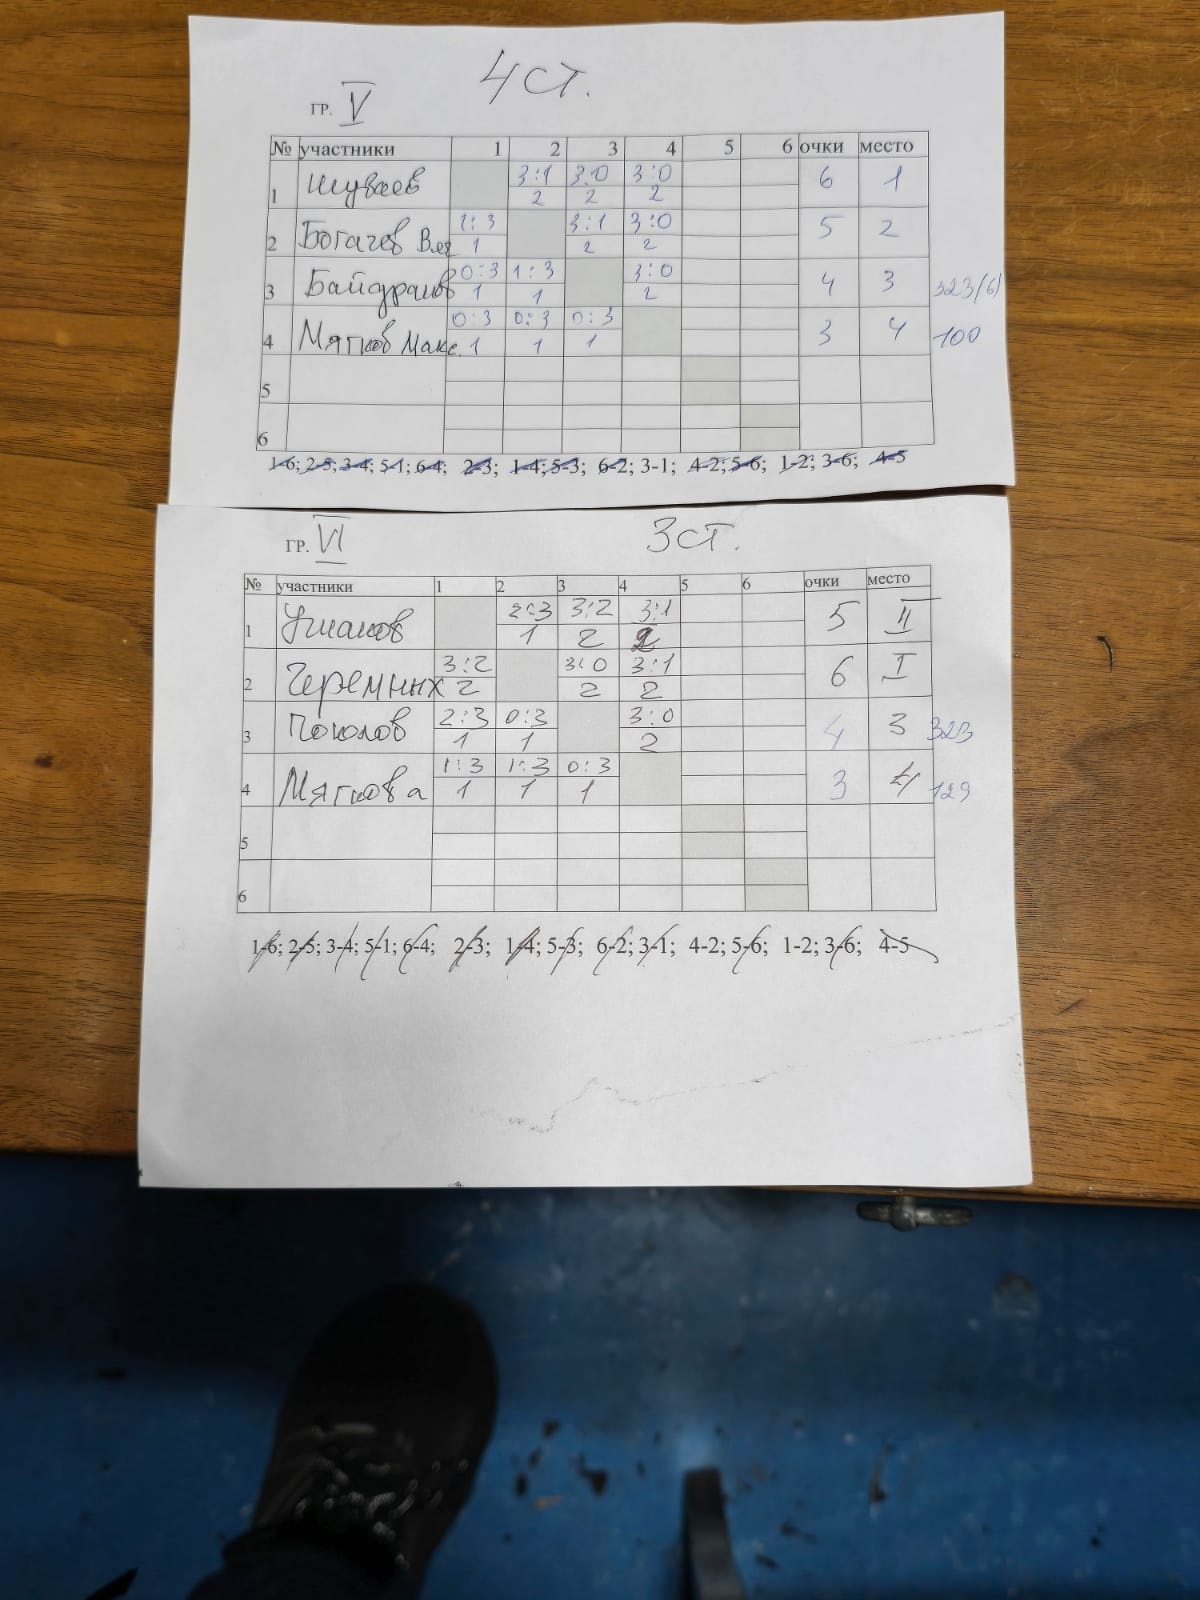 4 ст.
гр. V
№ участники 1 2 3 4 5 6 очки место
1 Шуваев 3:1 3:0 3:0 6 1
2 2 2
2 Богачев Вяч 1:3 3:1 3:0 5 2
1 2 2
3 0:3 1:3 3:0 4 3 323(6)
1 1 2
4 Мягков Макс. 0:3 0:3 0:3 3 4 100
1 1 1
5
6
1-6; 2-5; 3-4; 5-1; 6-4; 2-3; 1-4; 5-3; 6-2; 3-1; 4-2; 5-6; 1-2; 3-6; 4-5
гр. VI 3 ст.
№ участники 1 2 3 4 5 6 очки место
1 Ушаков 2:3 3:2 3:1 5 II
1 2 2
2 Черемных 3:2 3:0 3:1 6 I
2 2 2
3 2:3 0:3 3:0 4 3 323
1 1 2
4 Мягкова 1:3 1:3 0:3 3 4 129
1 1 1
5
6
1-6; 2-5; 3-4; 5-1; 6-4; 2-3; 1-4; 5-3; 6-2; 3-1; 4-2; 5-6; 1-2; 3-6; 4-5